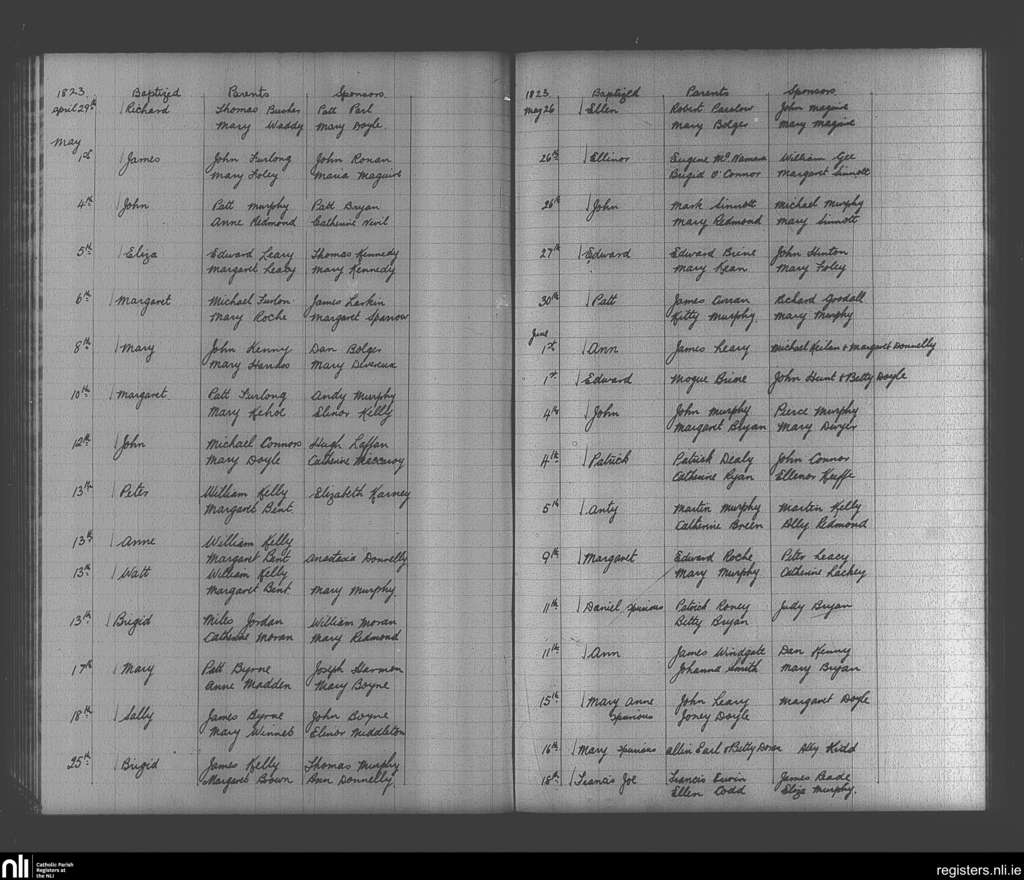 1823 Baptized Parents Sponsors
April 29th Richard Thomas Busher Patt Parl
Mary Waddy Mary Doyle
May
1st James John Furlong John Ronan
Mary Foley Maria Maguire
4th John Patt Murphy Patt Bryan
Anne Redmond Catherine Nevil
5th Eliza Edward Leary Thomas Kennedy
Margaret Leacy Mary Kennedy
6th Margaret Michael Furlon James Larkin
Mary Roche Margaret Sparrow
8th Mary John Kenny Dan Bolger
Mary Devereux
10th Margaret Patt Furlong Andy Murphy
Mary Kehoe Elinor Kelly
12th John Michael Connors Hugh Laffan
Mary Doyle Catherine
13th Peter William Kelly Elizabeth Karney
Margaret Bent
13th Anne William Kelly
Margaret Bent Anastasia Donnelly
13th Watt William Kelly
Margaret Bent Mary Murphy
13th Brigid Miles Jordan William Moran
Catherine Moran Mary Redmond
17th Mary Patt Byrne Joseph Harmon
Anne Madden Mary Boyne
18th Sally James Byrne John Boyne
Mary Winnet Elenor Middleton
25th Brigid James Kelly Thomas Murphy
Margaret Brown Ann Donnelly
1823 Baptized Parents Sponsors
May 26 Ellen Robert Carelow John Maguire
Mary Bolger Mary Maguire
26th Ellinor Eugene McNamara William Gee
Brigid O'Connor Margaret Sinnott
26th John Mark Sinnott Michael Murphy
Mary Redmond Mary Sinnott
27th Edward Edward Brine John Hinton
Mary Kean Mary Foley
30th Patt James Curran Richard Goodall
Kitty Murphy Mary Murphy
June
1st Ann James Leary Michael Keilan & Margaret Donnelly
1st Edward Mogue Brine John Hunt & Betty Doyle
4th John John Murphy Pierce Murphy
Margaret Bryan Mary Dwyer
4th Patrick Patrick Dealy John Connor
Catherine Ryan Ellenor Keiffe
5th Anty Martin Murphy Martin Kelly
Catherine Breen Ally Redmond
9th Margaret Edward Roche Peter Leacy
Mary Murphy Catherine Lackey
11th Daniel, spurious Patrick Roney Judy Bryan
Betty Bryan
11th Ann James Windgate Dan Kenny
Johanna Smith Mary Bryan
15th Mary Anne John Leary Margaret Doyle
Spurious Joney Doyle
16th Mary spurious Allen Earl & Betty Doran Ally Kidd
18th Francis Joe Francis Erwin James Beade
Ellen Codd Eliza Murphy.
nli Catholic Parish
Registers at
the NLI
registers.nli.ie